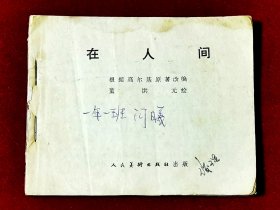 在人间
根据高尔基原著改编
董洪元绘
一年一班
人民美术出版社出版